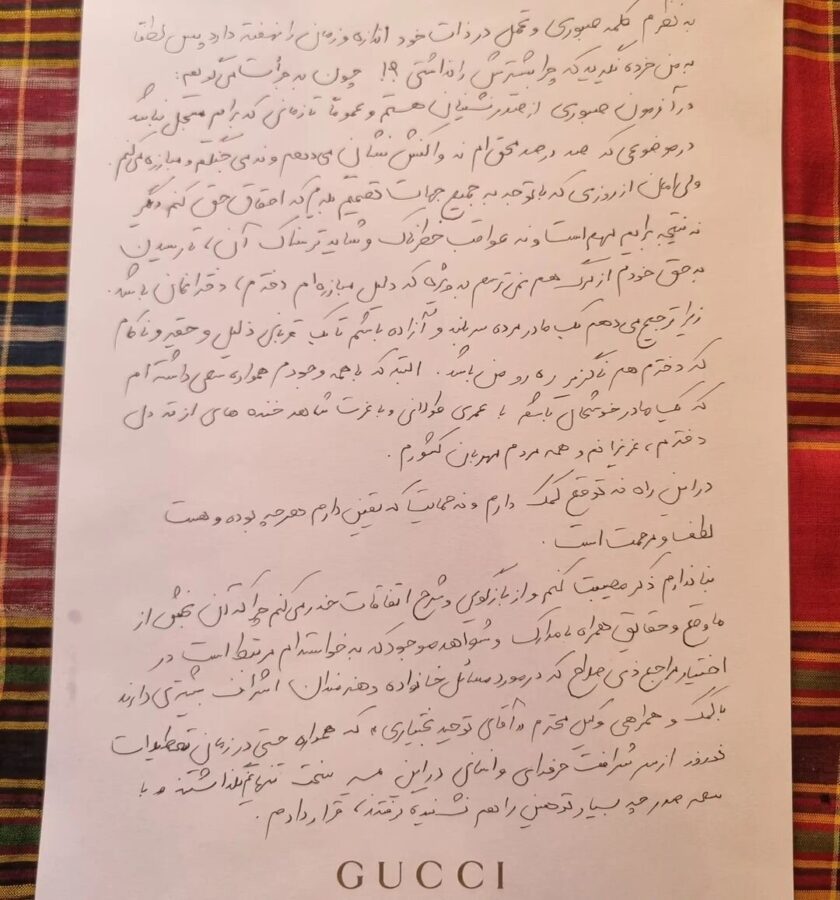 به نظرم کلمه صبوری و تحمل در ذات خود اندازه و زمان را نهفته دارد پس لطفا
به من خرده نگیرید که چرا بیشترش را نداشتی ؟! چون به جرأت می‌گویم:
در آزمون صبوری از صدرنشینان هستم و عموماً تا زمانی که برایم متحمل باشد
در موضوعی که صد در صد محق‌ام نه واکنش نشان می‌دهم و نه می‌جنگم و مبارزه می‌کنم.
ولی امان از روزی که با توجه به جمیع جهات تصمیم بگیرم که احقاق حق کنم دیگر
نه نتیجه برایم مهم است و نه عواقب خطرناک و شاید ترسناک آن، تا رسیدن
به حق خودم از مرگ هم نمی‌ترسم به ویژه که دلیل مبارزه‌ام دفترم، دخترانمان باشد.
زیرا ترجیح می‌دهم یک مادر مرده سربلند و آزاده باشم تا یک قربانی ذلیل و حقیر و ناکام
که دخترم هم ناگزیر ره رو من باشد. البته که با همه وجودم همواره سعی داشته‌ام
که یک مادر خوشحال باشم با عمری طولانی و با عزت شاهد خنده های از ته دل
دخترم، عزیزانم و همه مردم مهربان کشورم.
در این راه نه توقع کمک دارم و نه حمایت که یقین دارم هرچه بوده و هست
لطف و مرحمت است.
بنا ندارم ذکر مصیبت کنم و از بازگویی و شرح اتفاقات حذر می‌کنم چرا که آن بخش از
ماوقع و حقایق همراه با مدارک و شواهد موجود که به خواسته‌ام مرتبط است در
اختیار مراجع ذی صلاح که در مورد مسائل خانواده و هنرمندان اشراف بیشتری دارند
با کمک و همراهی وکیل محترم «آقای توحید بختیاری» که همواره حتی در زمان تعطیلات
نوروز از سر شرافت حرفه‌ای و انسانی در این مسیر سخت تنهایم نگذاشتند و با
سعه صدر چه بسیار توهین را هم نشنیده گرفتند، قرار دادم.
GUCCI